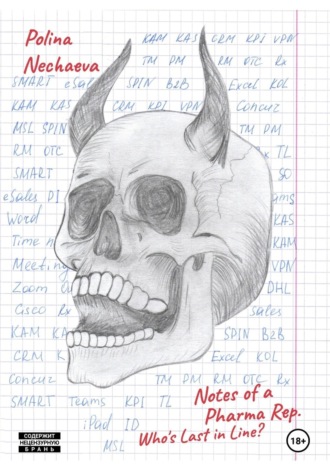 Polina
Nechaeva
KAM KAS CRM KPI VPN
TM DM RM OTC Rx
SMART eSales SPIN B2B Excel KOL
KAM KAS CRM KPI VPN Concur
MSL SPIN TM DM
RM OTC TL
SMART SO
eSales DI
Word KAS
Time KAM
Meeti VPN
Zoom DHL
Cisco Rx Sales
KAM KA SPIN B2B
CRM K Excel KOL
Concur TM DM RM OTC Rx
SMART Teams KPI TL
iPad ID
MSL
Notes of a
Pharma Rep.
Who's Last in Line?
СОДЕРЖИТ
НЕЦЕНЗУРНУЮ
БРАНЬ
18+